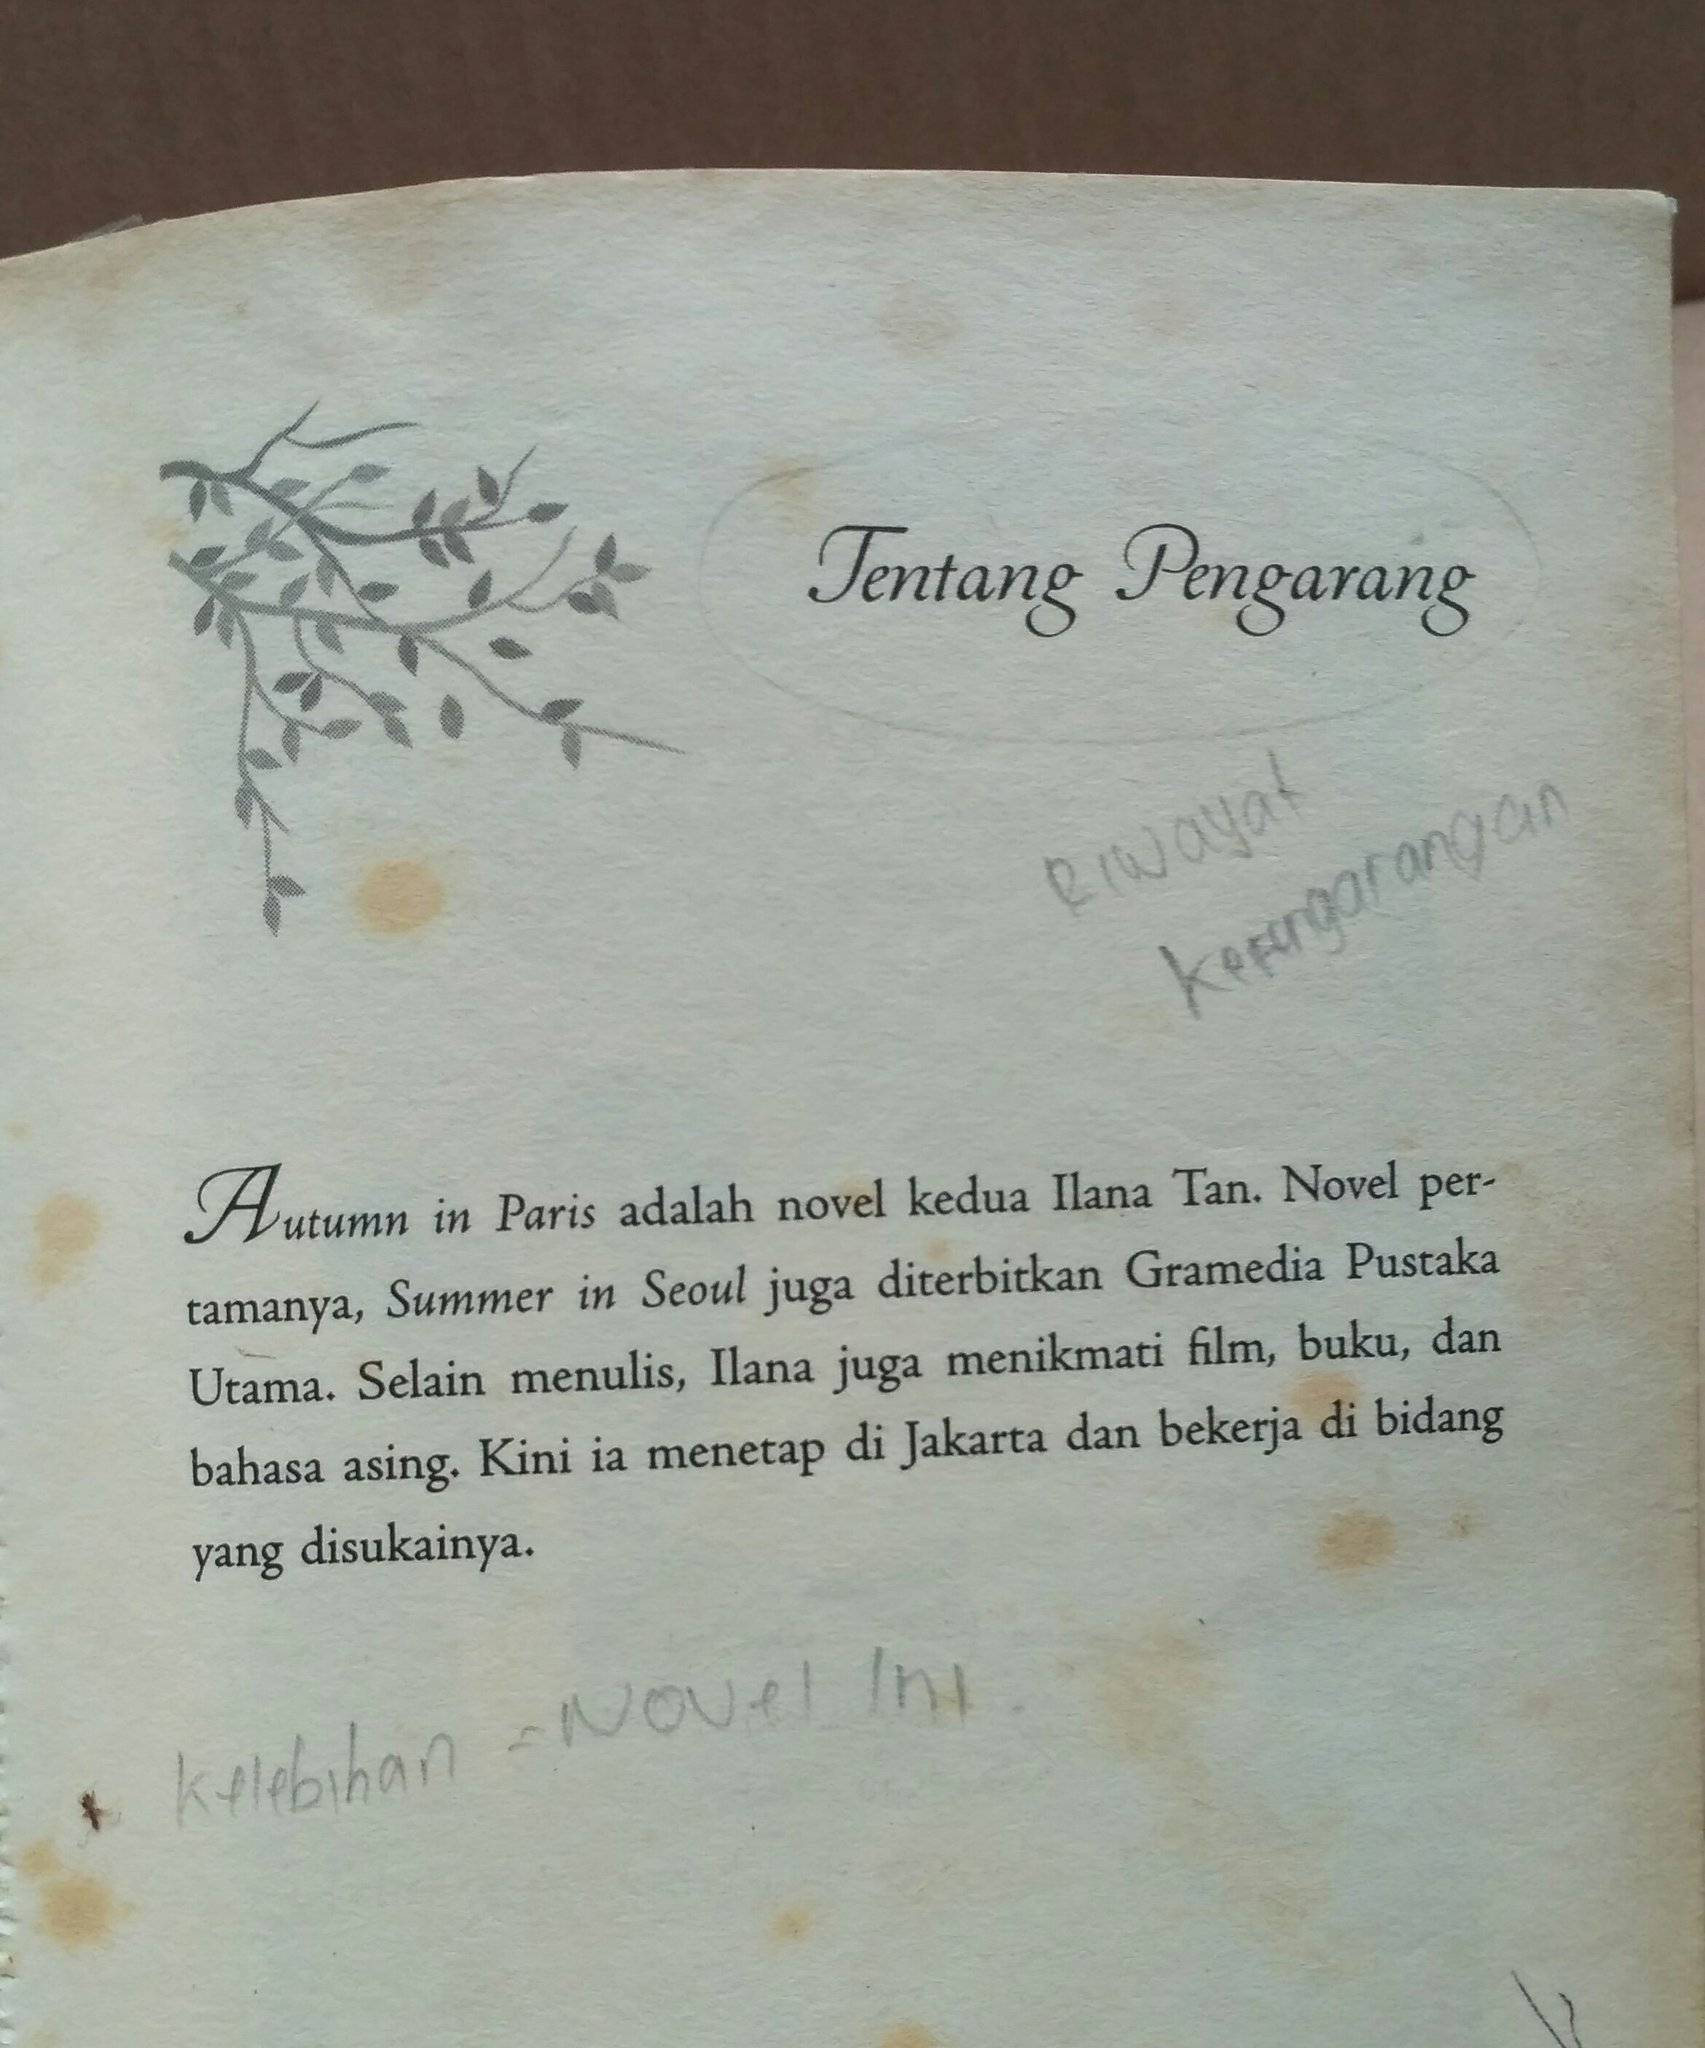 Tentang Pengarang
Riwayat
kepengarangan
Autumn in Paris adalah novel kedua Ilana Tan. Novel per-
tamanya, Summer in Seoul juga diterbitkan Gramedia Pustaka
Utama. Selain menulis, Ilana juga menikmati film, buku, dan
bahasa asing. Kini ia menetap di Jakarta dan bekerja di bidang
yang disukainya.
Kelebihan - Novel Ini